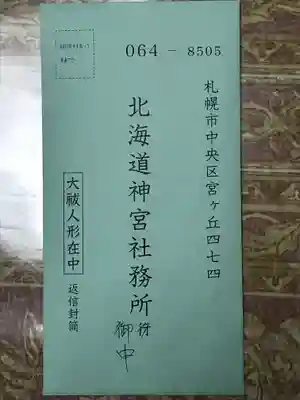 064-8505
札幌市中央区宮ヶ丘四七四
北海道神宮社務所 行
御中
大祓人形在中
返信封筒